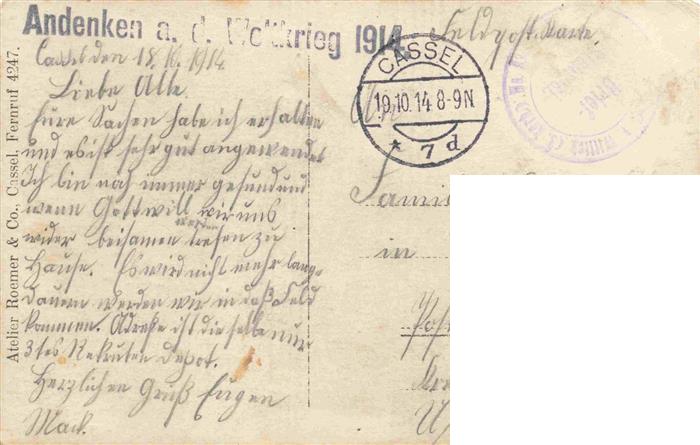 Andenken a. d. Weltkrieg 1914.
Feldpostkarte
Cassel den 18.10.1914
Liebe Alle.
Eure Sachen habe ich erhalten
und es ist sehr gut angewendet
Ich bin noch immer gesund und
wenn Gott will werden wir uns
wider beisamen trefen zu
Hause. Es wird nicht mehr lang
dauern werden wir in daß Feld
kommen. Adreße ist die selbe nur
3tes Rekruten Depot.
Herzlichen Gruß Eugen
Mack.
CASSEL
19.10.14 8-9N
* 7 d
Brief-
An
Famil
in
Post
U
Atelier Roemer & Co., Cassel, Fernruf 4247.